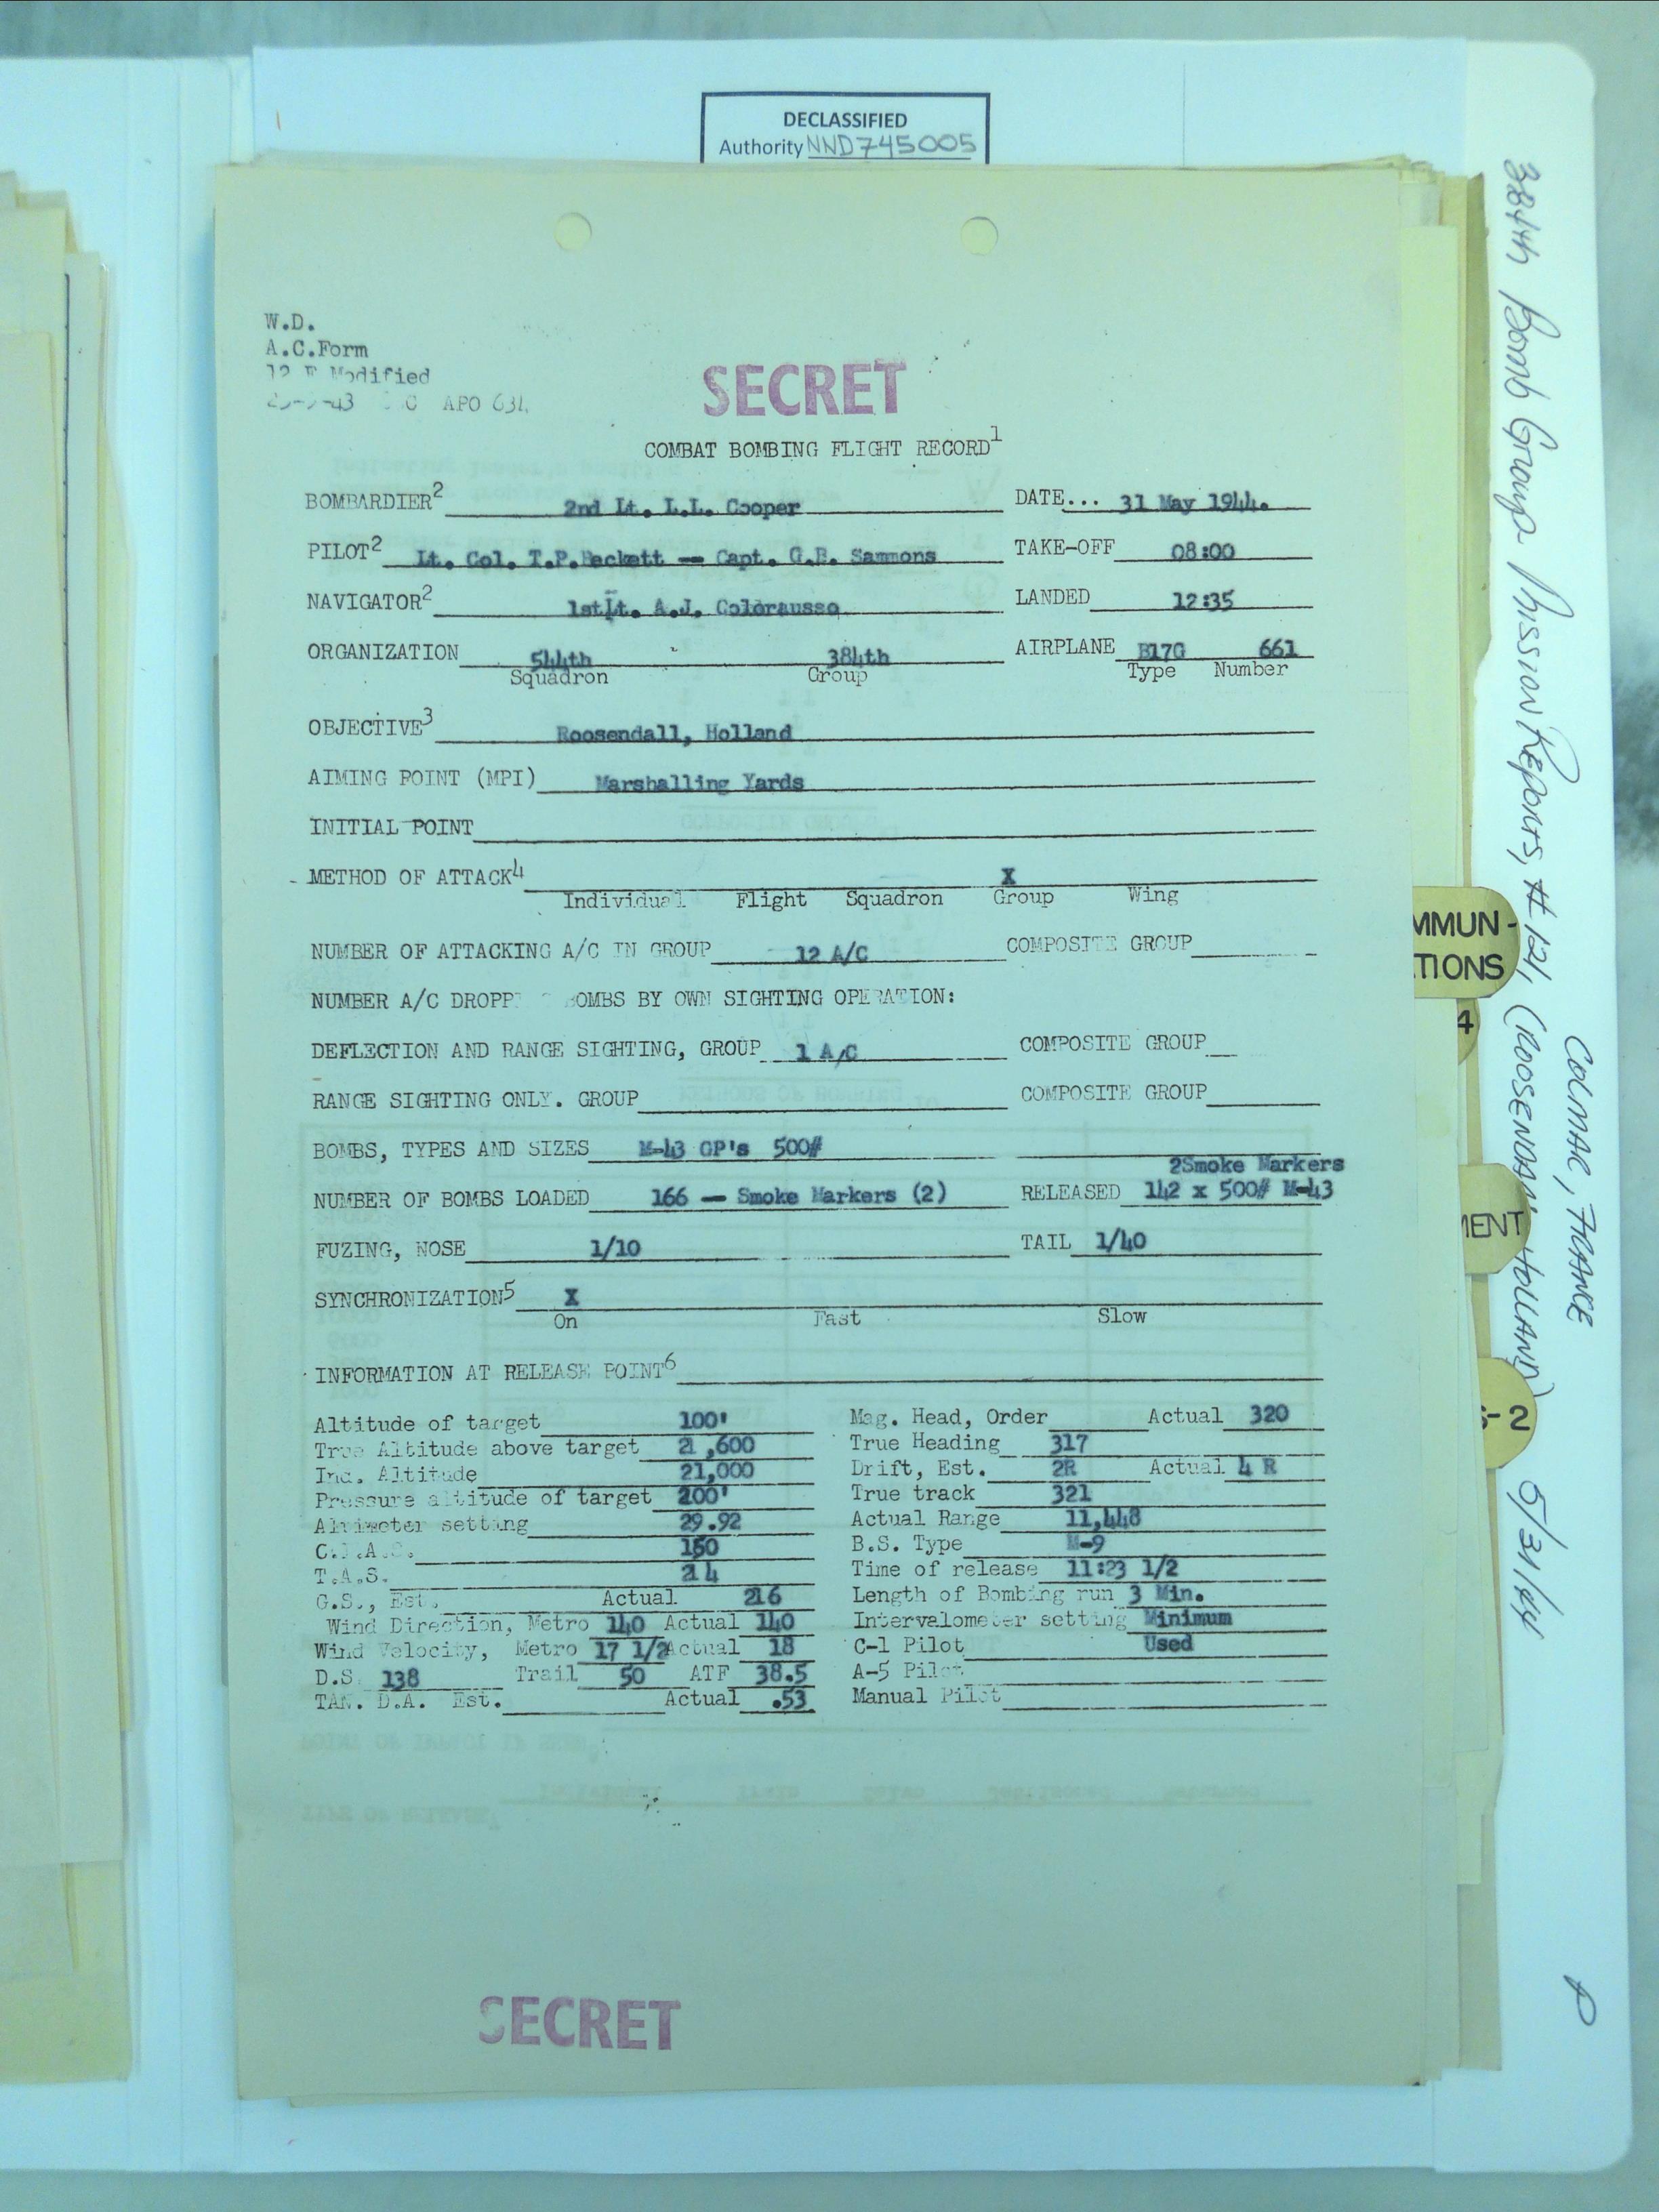 DECLASSIFIED
Authority NND745005
W.D.
A.C.Form
12 E Modified
APO 634
SECRET
COMBAT BOMBING FLIGHT RECORD1
BOMBARDIER2 2nd Lt. L.L. Cooper DATE... 31 May 1944.
PILOT2 Lt. Col. T.P.Beckett -- Capt. G.B. Sammons TAKE-OFF 08:00
NAVIGATOR2 1stLt. A.J. Colorausso LANDED 12:35
ORGANIZATION 544th 384th AIRPLANE B17G 661
Squadron Group Type Number
OBJECTIVE3 Roosendall, Holland
AIMING POINT (MPI) Marshalling Yards
INITIAL POINT
METHOD OF ATTACK4 X
Individual Flight Squadron Group Wing
NUMBER OF ATTACKING A/C IN GROUP 12 A/C COMPOSITE GROUP
NUMBER A/C DROPP BOMBS BY OWN SIGHTING OPERATION:
DEFLECTION AND RANGE SIGHTING, GROUP 1 A/C COMPOSITE GROUP
RANGE SIGHTING ONLY. GROUP COMPOSITE GROUP
BOMBS, TYPES AND SIZES M-43 GP's 500#
2Smoke Markers
NUMBER OF BOMBS LOADED 166 -- Smoke Markers (2) RELEASED 142 x 500# M-43
FUZING, NOSE 1/10 TAIL 1/40
SYNCHRONIZATION5 X
On Fast Slow
INFORMATION AT RELEASE POINT6
Altitude of target 100' Mag. Head, Order Actual 320
True Altitude above target 21,600 True Heading 317
Ind. Altitude 21,000 Drift, Est. 2R Actual 4 R
Pressure altitude of target 200' True track 321
Altimeter setting 29.92 Actual Range 11,448
C.I.A.S. 150 B.S. Type M-9
T.A.S. Time of release 11:23 1/2
G.S., Est. Actual 216 Length of Bombing run 3 Min.
Wind Direction, Metro 140 Actual 140 Intervalometer setting Minimum
Wind Velocity, Metro 17 1/2 Actual 18 C-1 Pilot Used
D.S. 138 Trail 50 ATF 38.5 A-5 Pilot
TAN. D.A. Est. Actual .53 Manual Pilot
SECRET
384th Bomb Group Mission Reports, #121, (ROOSENDAAL HOLLAND) 5/31/44
COLMAR, FRANCE
MMUN-
TIONS
4
MENT
-2